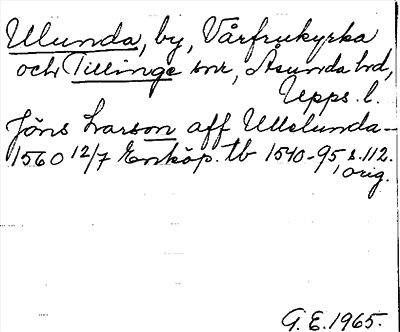 Ulunda, by, Vårfrukyrka
och Tillinge snr, Åsunda hd,
Upps. l.
Jöns Larson aff Ullslunda –
1560 12/7 Enköp. tb 1540-95 s. 112.
orig.
G. E. 1965.